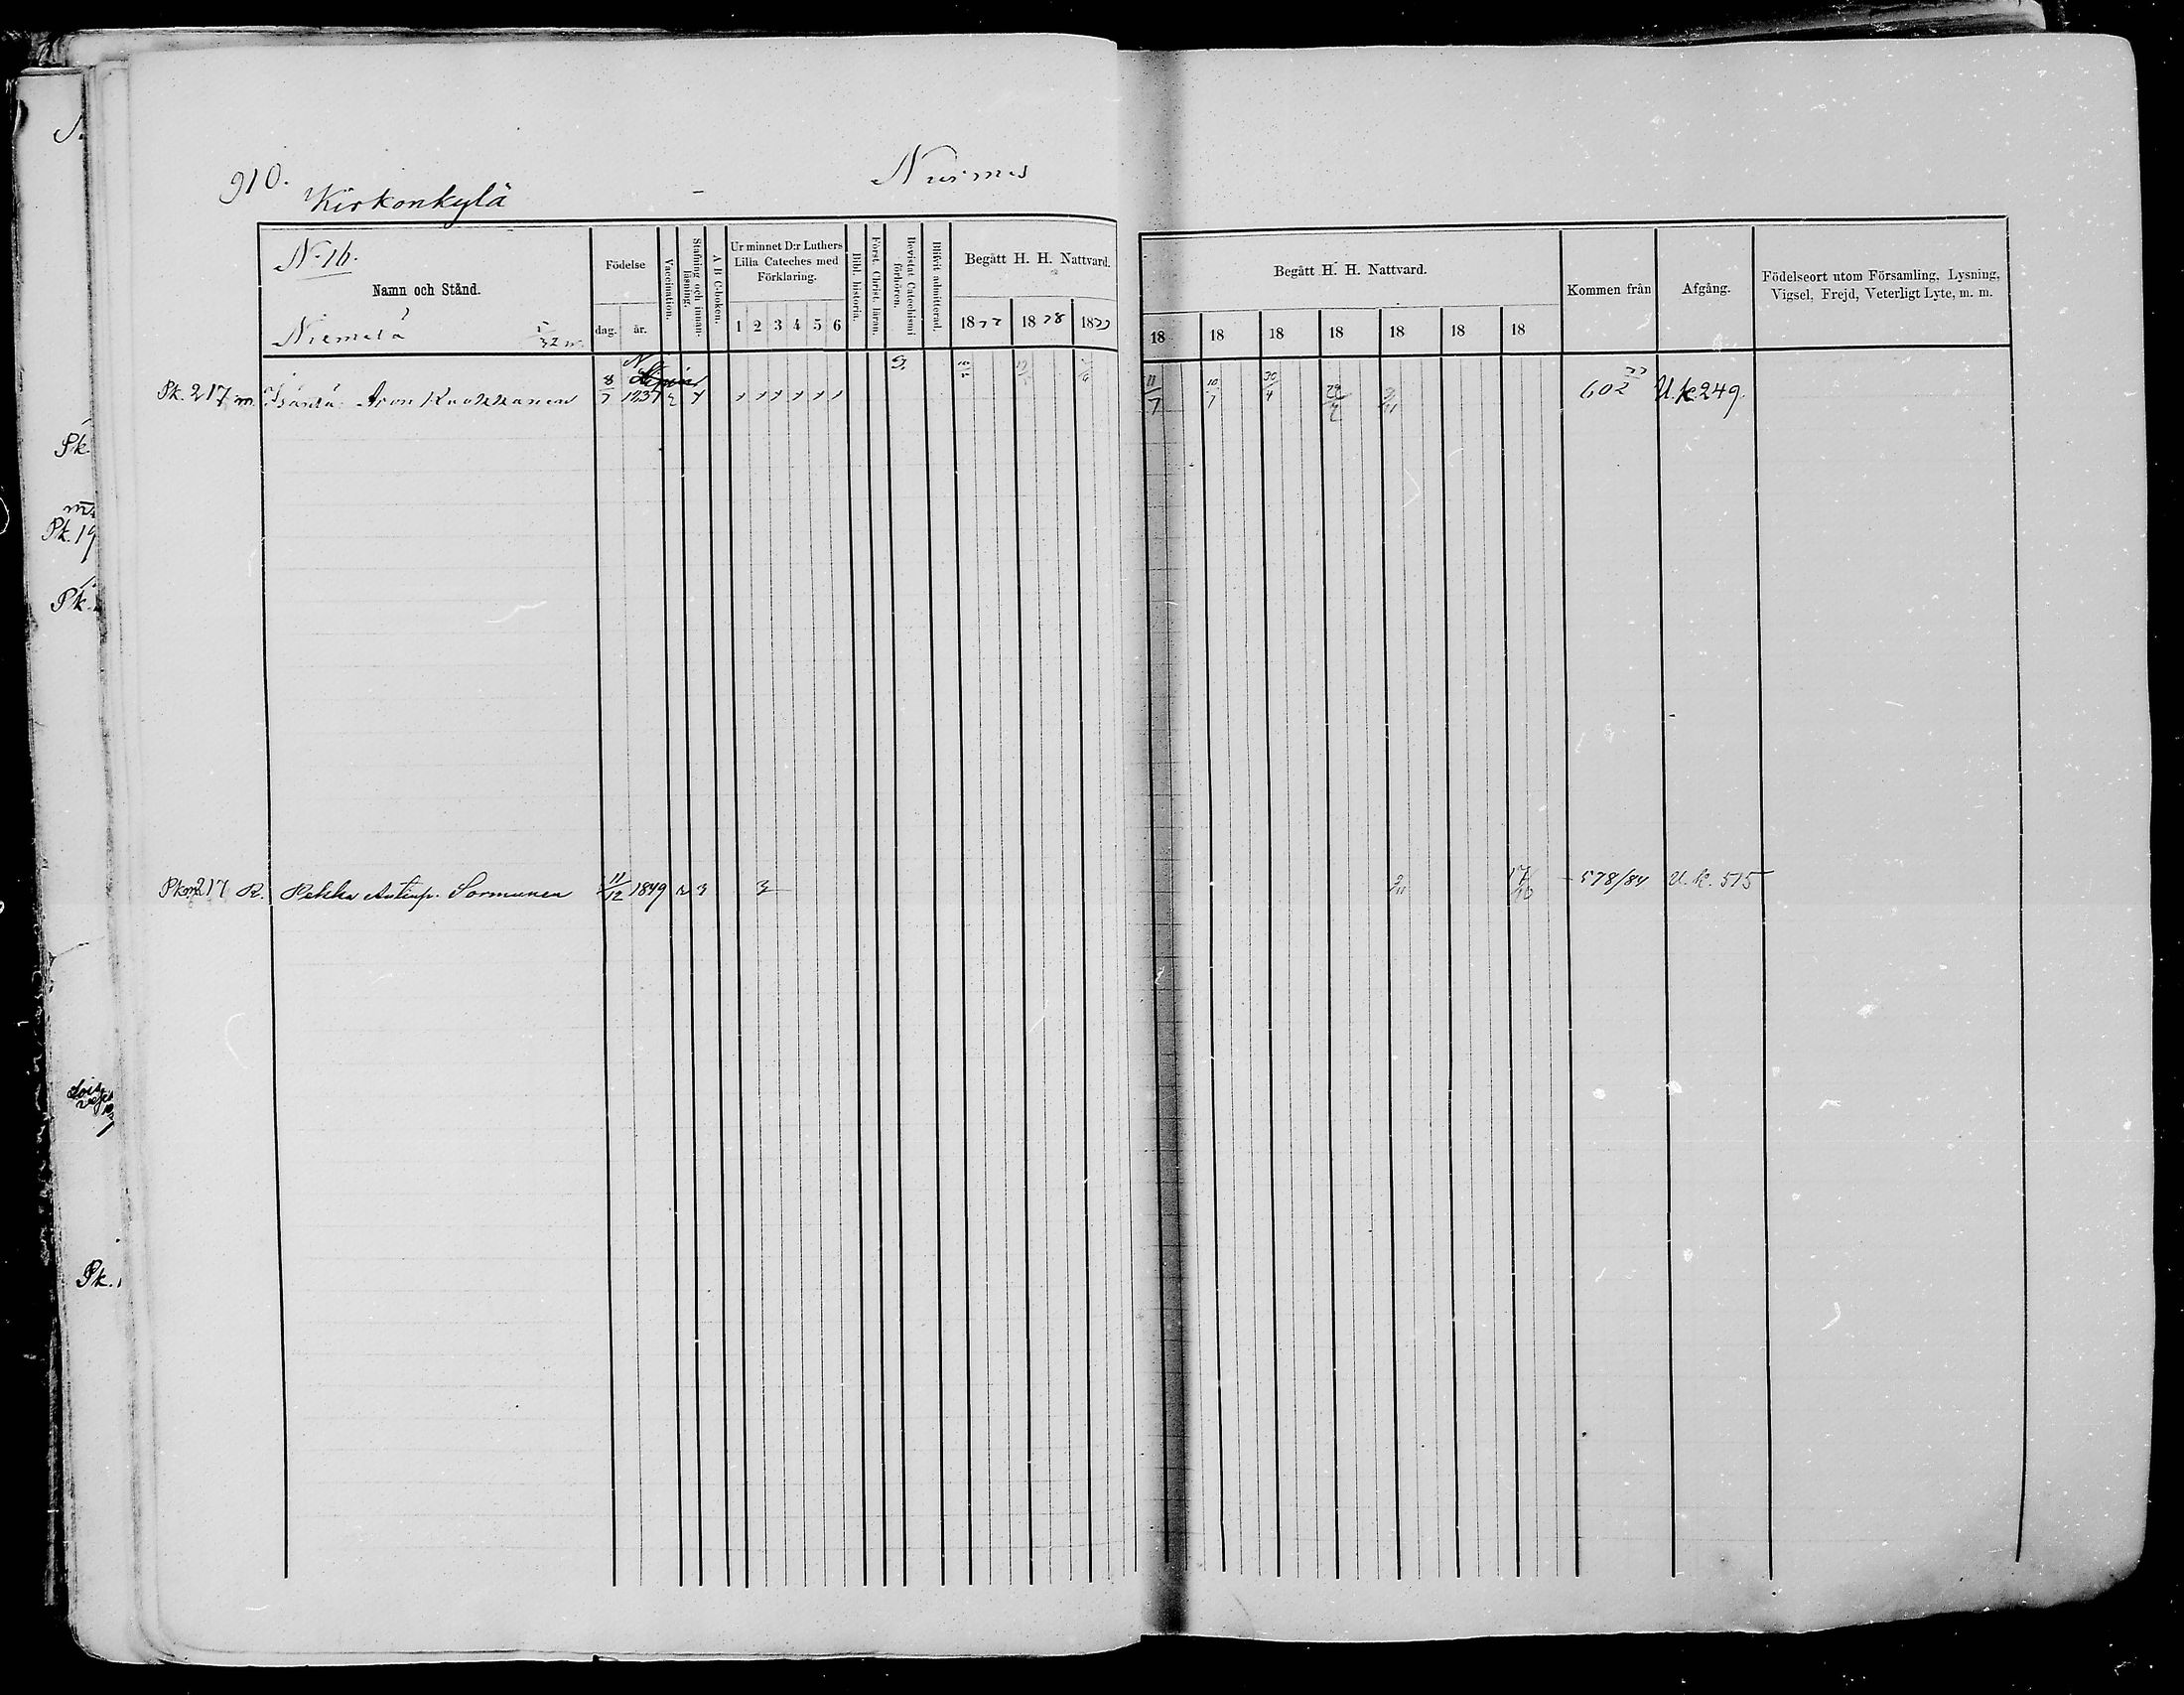 910.
Kirkonkylä - Nurmes
No 16.
Namn och Stånd.
Niemelä
Födelse
dag. år.
Vaccination.
Stafning och innan-läsning.
A B C-boken.
Ur minnet D:r Luthers
Lilla Cateches med
Förklaring.
1 2 3 4 5 6
Bibl. historia.
Först. Christ. läran.
Bevistat Catechismi förhören.
Blifvit admitterad.
Begått H. H. Nattvard.
1877 1878 1879
Begått H. H. Nattvard.
18 18 18 18 18 18 18
Kommen från
Afgång.
Födelseort utom Församling, Lysning,
Vigsel, Frejd, Veterligt Lyte, m. m.
Pk. 217 m. Isäntä Aron Kuokkanen 8/7 11/7 10/7 30/4 602 77 U.k 249.
217 R. Pekka Antinp. Sormunen 11/12 1849 v 3 3 578/84 U.k. 515
Pk.
Pk. 19
Pk.
Pk.